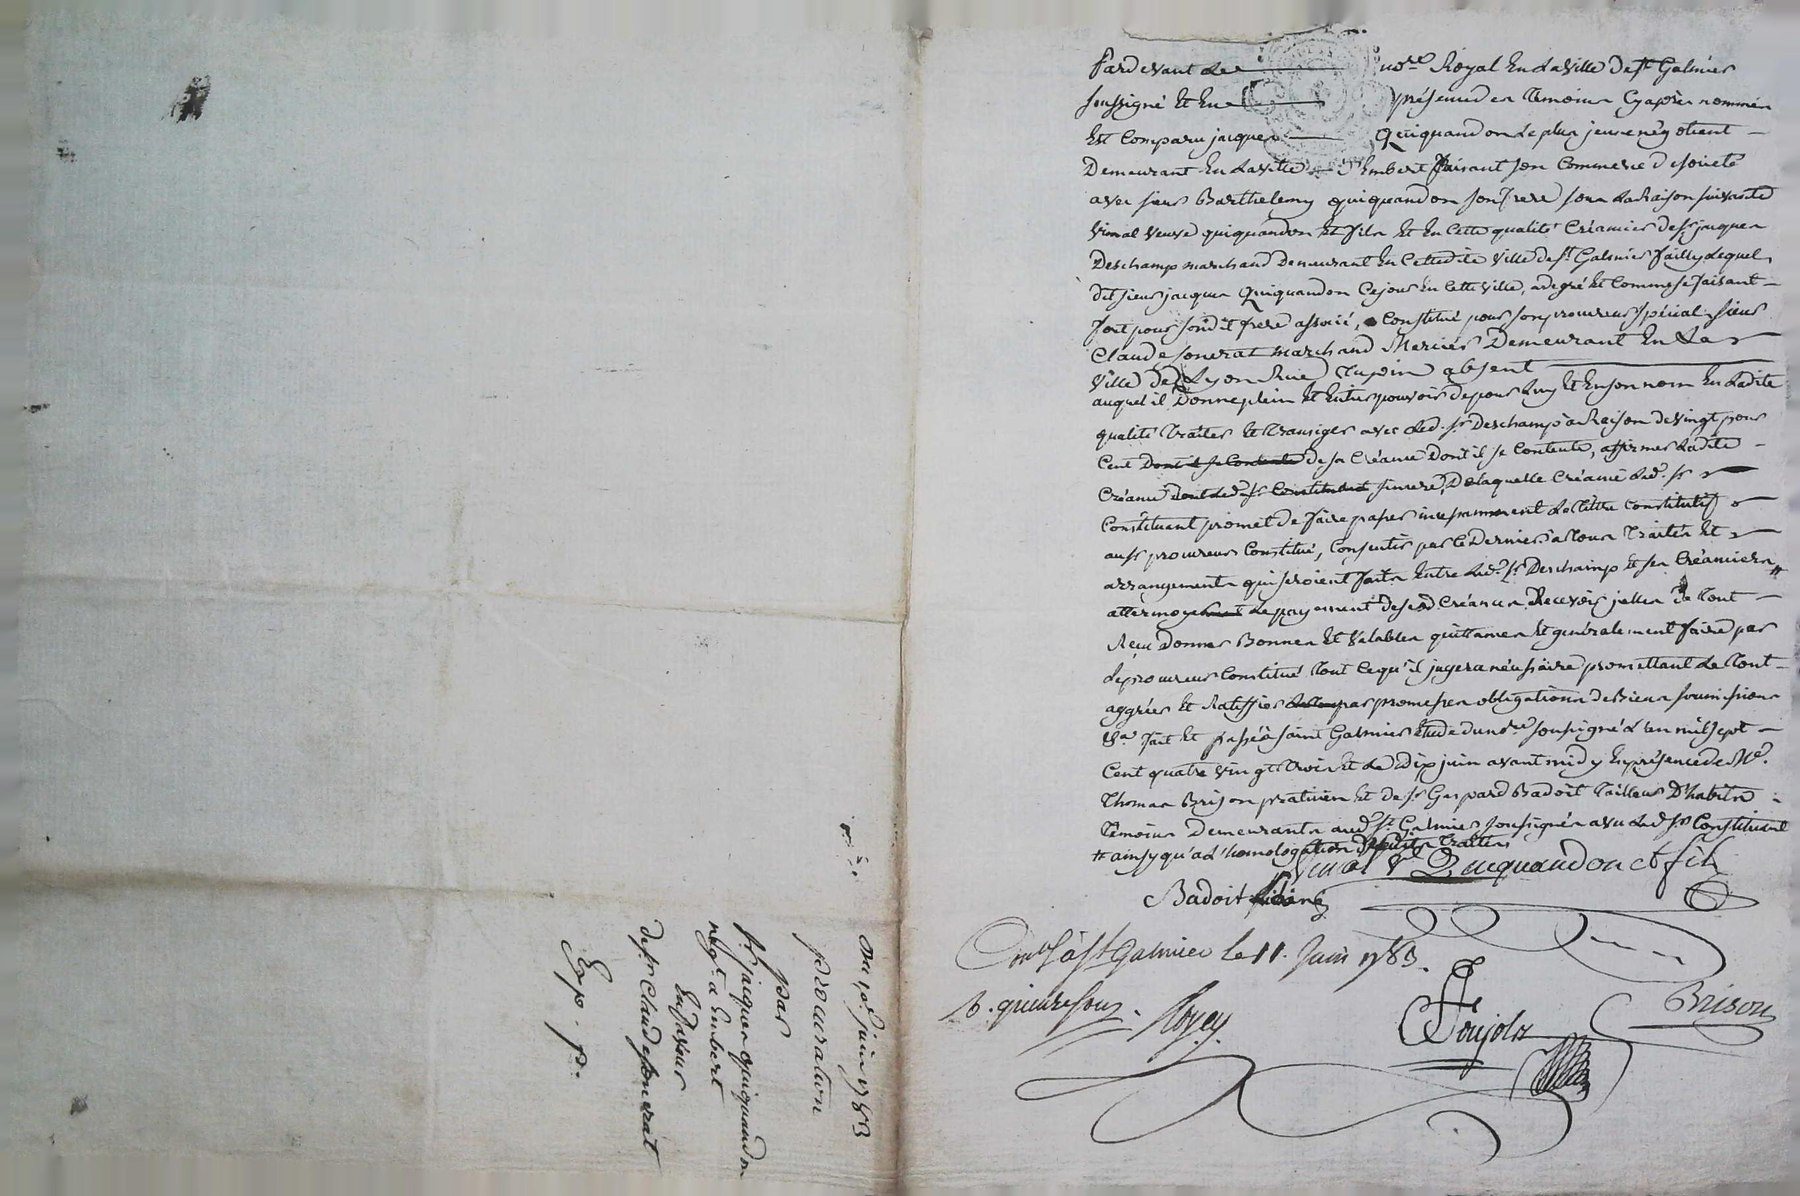 Pardevant Le nore. Royal En La Ville De st Galmier
soussigné Et En présence des Temoins Cy après nommés
Est Comparu jacques Quiquandon Le plus jeune négotient
Demeurant En La Ville d'Embert faisant son Commerce de société
avec sieur Barthelemy quiquandon son frere sous La Raison suivante
Vimal Veuve quiquandon Et fils Et En Cette qualité Créancier de sr. jacques
Deschamp marchand Demeurant En Cettedite Ville de st. Galmier failly Lequel
dit sieur jacques Quiquandon Cejour En Cette Ville, a degré Et Comme se faisant
fort pour sondit frere associé, Constitué pour son procureur spécial sieur
Claude sonerat marchand Mercier Demeurant En La
Ville De Lyon Rue Tupin absent
auquel il Donne plein Et Entier pouvoir de pour Luy Et En son nom En Ladite
qualité Traiter Et Transiger avec Led. sr. Deschamp à Raison de vingt pour
Cent Dont il se Contente de sa Créance Dont il se Contente, affirmer Ladite
Créance dont Led. sr. Constituant sincere, De laquelle Créance Led. sr
Constituant promet de faire passer incessamment Le Tittre Constitutif
au sr procureur Constitué, Consentir par Ce Dernier a Tous Traités Et
arrangements qui seroient faits Entre Led. sr. Deschamp Et ses Créanciers
attermoyer Le payement desd Créances Recevoir jcelles De Tout
Reçu Donner Bonnes Et Valables quittances Et généralement faire par
Le procureur Constitué Tout Ce qu'il jugera nécessaire promettant Le Tout
aggréer Et Ratiffier par promesses obligations de Biens soumissions
&a. fait Et passé à saint Galmier étude du nore soussigné L'an mil sept
Cent quatre vingt Trois Et Le Dix juin avant midy En présence de Me.
Thomas Brison praticien Et de sr. Gaspard Badoit Tailleur D'habits
Témoins Demeurants aud. st. Galmier soussignés avec Led. sr. Constituant
ainsy qu'a L'homologation Desdits Traités
Vimal Ve. Quiquandon et fils
Badoit
Conlé à st galmier le 11. Juin 1783.
R. quinze sous. Royey
Poujols
Brison
Du 10 juin 1783
procuration
par
sr. jacques quiquandon
négt. a Embert
En faveur
de sr. Claude sonerat
Exp. p.